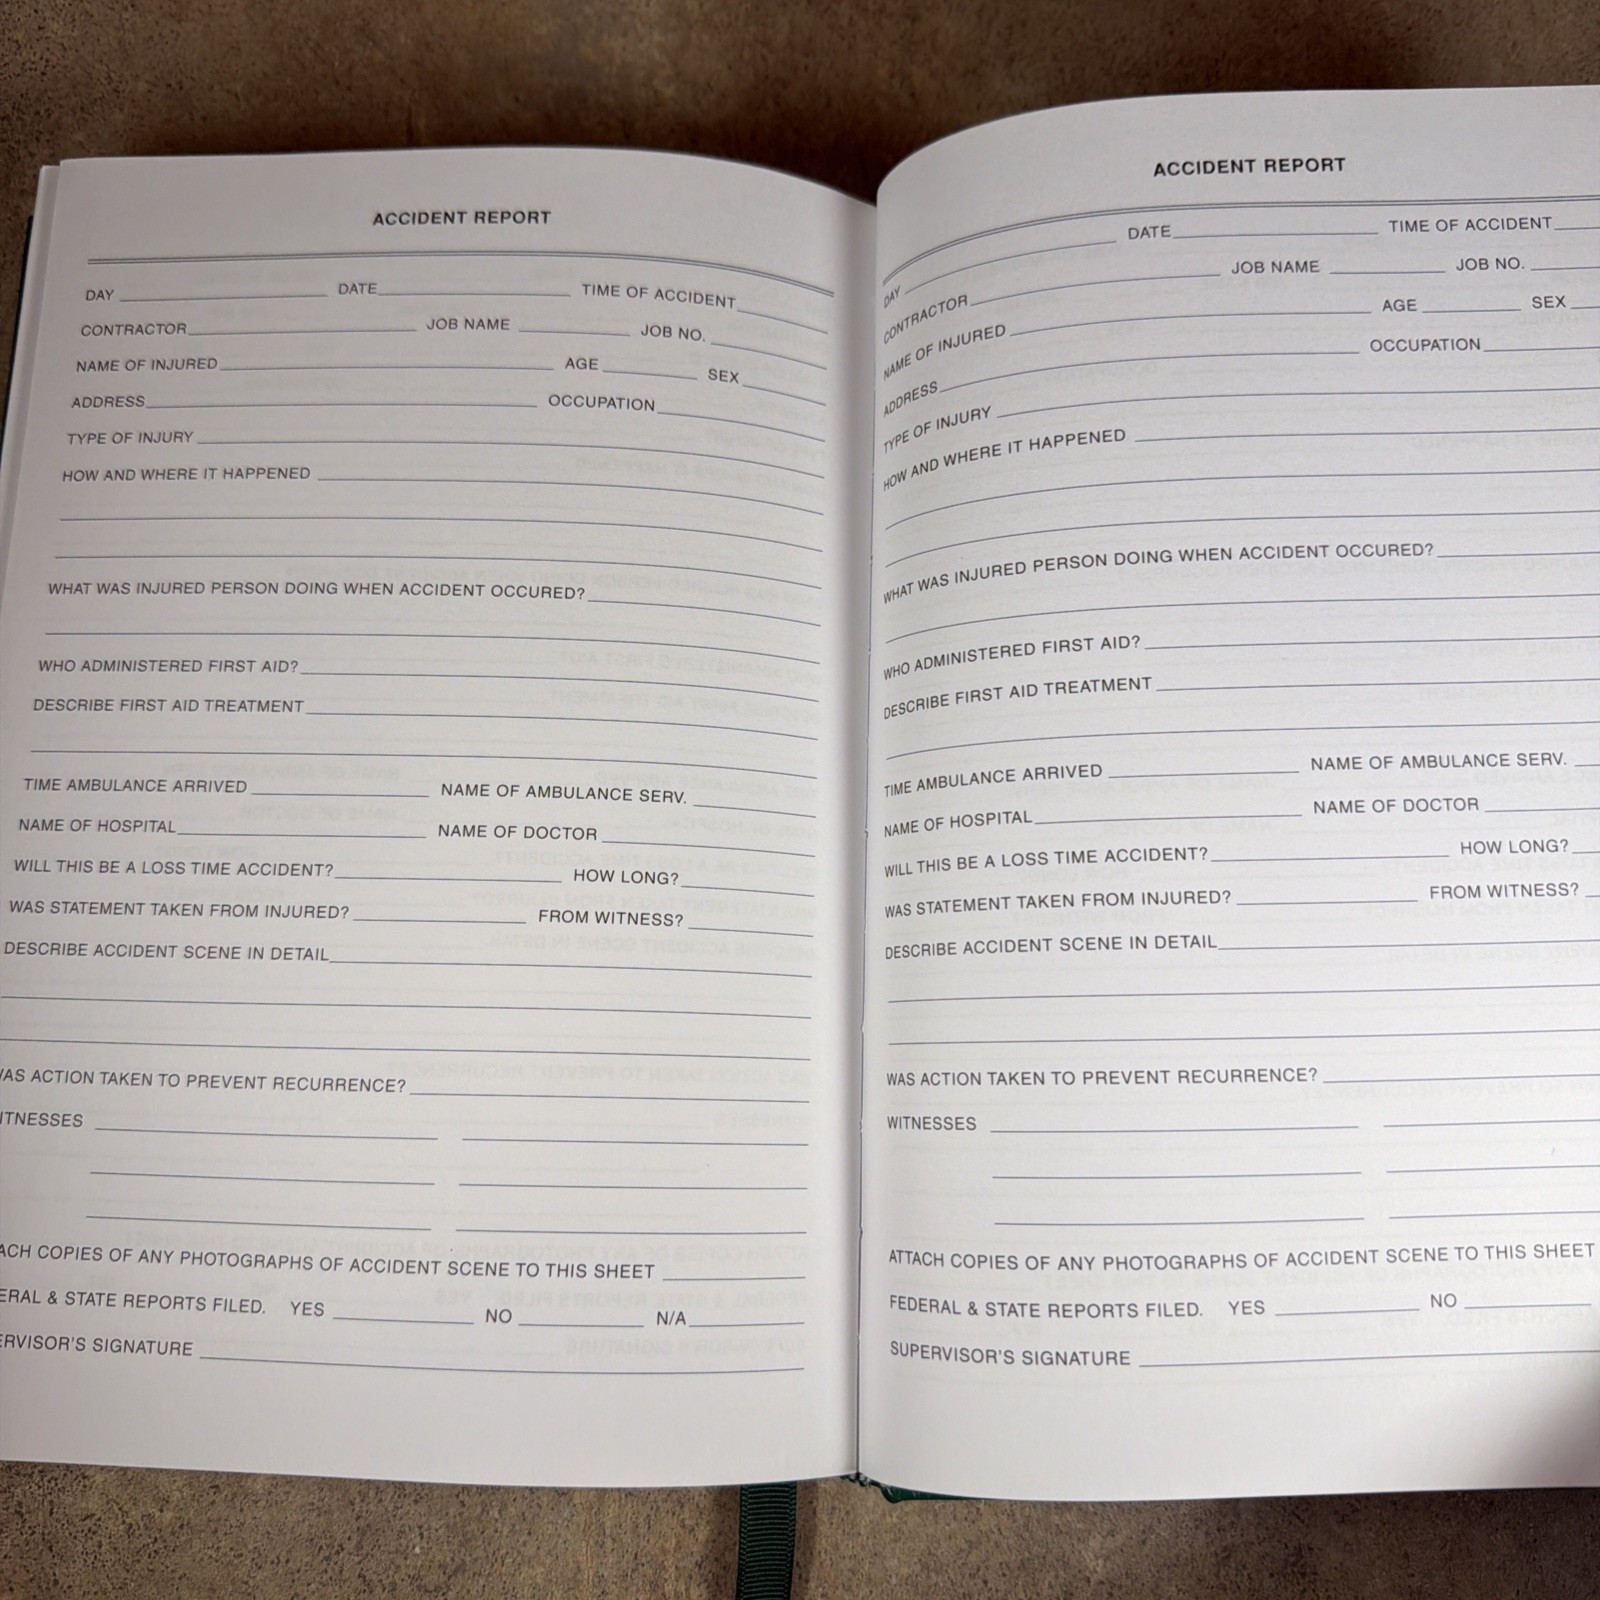 ACCIDENT REPORT
DAY DATE TIME OF ACCIDENT
CONTRACTOR JOB NAME JOB NO.
NAME OF INJURED AGE SEX
ADDRESS OCCUPATION
TYPE OF INJURY
HOW AND WHERE IT HAPPENED
WHAT WAS INJURED PERSON DOING WHEN ACCIDENT OCCURED?
WHO ADMINISTERED FIRST AID?
DESCRIBE FIRST AID TREATMENT
TIME AMBULANCE ARRIVED NAME OF AMBULANCE SERV.
NAME OF HOSPITAL NAME OF DOCTOR
WILL THIS BE A LOSS TIME ACCIDENT? HOW LONG?
WAS STATEMENT TAKEN FROM INJURED? FROM WITNESS?
DESCRIBE ACCIDENT SCENE IN DETAIL
WAS ACTION TAKEN TO PREVENT RECURRENCE?
ITNESSES
ACH COPIES OF ANY PHOTOGRAPHS OF ACCIDENT SCENE TO THIS SHEET
ERAL & STATE REPORTS FILED. YES NO N/A
ERVISOR'S SIGNATURE
ACCIDENT REPORT
DAY DATE TIME OF ACCIDENT
CONTRACTOR JOB NAME JOB NO.
NAME OF INJURED AGE SEX
ADDRESS OCCUPATION
TYPE OF INJURY
HOW AND WHERE IT HAPPENED
WHAT WAS INJURED PERSON DOING WHEN ACCIDENT OCCURED?
WHO ADMINISTERED FIRST AID?
DESCRIBE FIRST AID TREATMENT
TIME AMBULANCE ARRIVED NAME OF AMBULANCE SERV.
NAME OF HOSPITAL NAME OF DOCTOR
WILL THIS BE A LOSS TIME ACCIDENT? HOW LONG?
WAS STATEMENT TAKEN FROM INJURED? FROM WITNESS?
DESCRIBE ACCIDENT SCENE IN DETAIL
WAS ACTION TAKEN TO PREVENT RECURRENCE?
WITNESSES
ATTACH COPIES OF ANY PHOTOGRAPHS OF ACCIDENT SCENE TO THIS SHEET
FEDERAL & STATE REPORTS FILED. YES NO
SUPERVISOR'S SIGNATURE